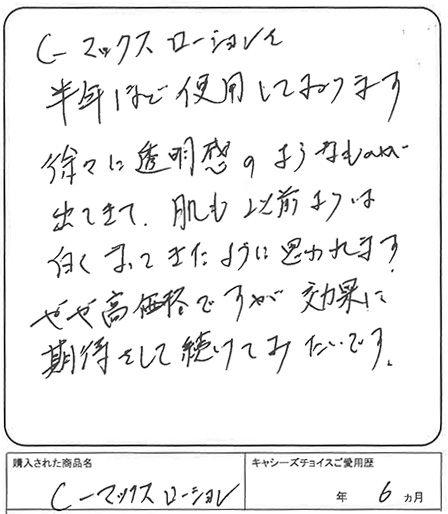 C－マックス ローションを
半年ほど使用しております
徐々に透明感のようなものが
出てきて、肌も以前よりは
白くなってきたように思われます
やや高価格ですが効果に
期待をして続けてみたいです。
購入された商品名
キャシーズチョイスご愛用歴
C－マックス ローション
年 6 ヵ月